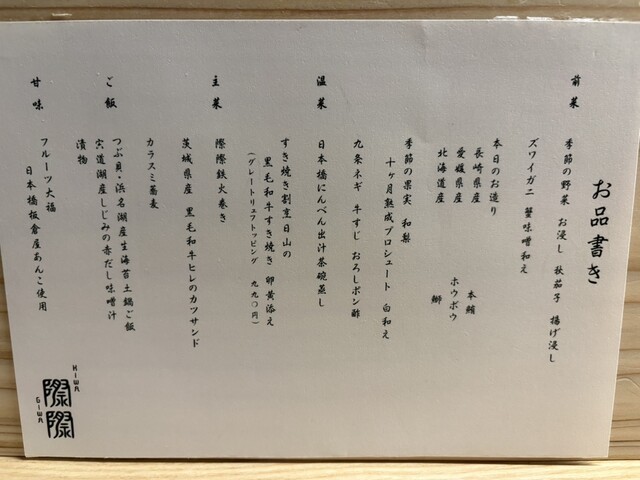 お品書き
前菜　季節の野菜　お浸し　秋茄子　揚げ浸し
ズワイガニ　蟹味噌和え
本日のお造り
長崎県産　本鮪
愛媛県産　ホウボウ
北海道産　鰤
季節の果実　和梨
十ヶ月熟成プロシュート　白和え
九条ネギ　牛すじ　おろしポン酢
温菜　日本橋にんべん出汁茶碗蒸し
すき焼き割烹日山の
黒毛和牛すき焼き　卵黄添え
(グレートリュフトッピング　九九〇円)
主菜　際際鉄火巻き
茨城県産　黒毛和牛ヒレのカツサンド
カラスミ蕎麦
ご飯　つぶ貝・浜名湖産生海苔土鍋ご飯
宍道湖産しじみの赤だし味噌汁
漬物
甘味　フルーツ大福
日本橋板倉屋あんこ使用
KIWA
GIWA
際際